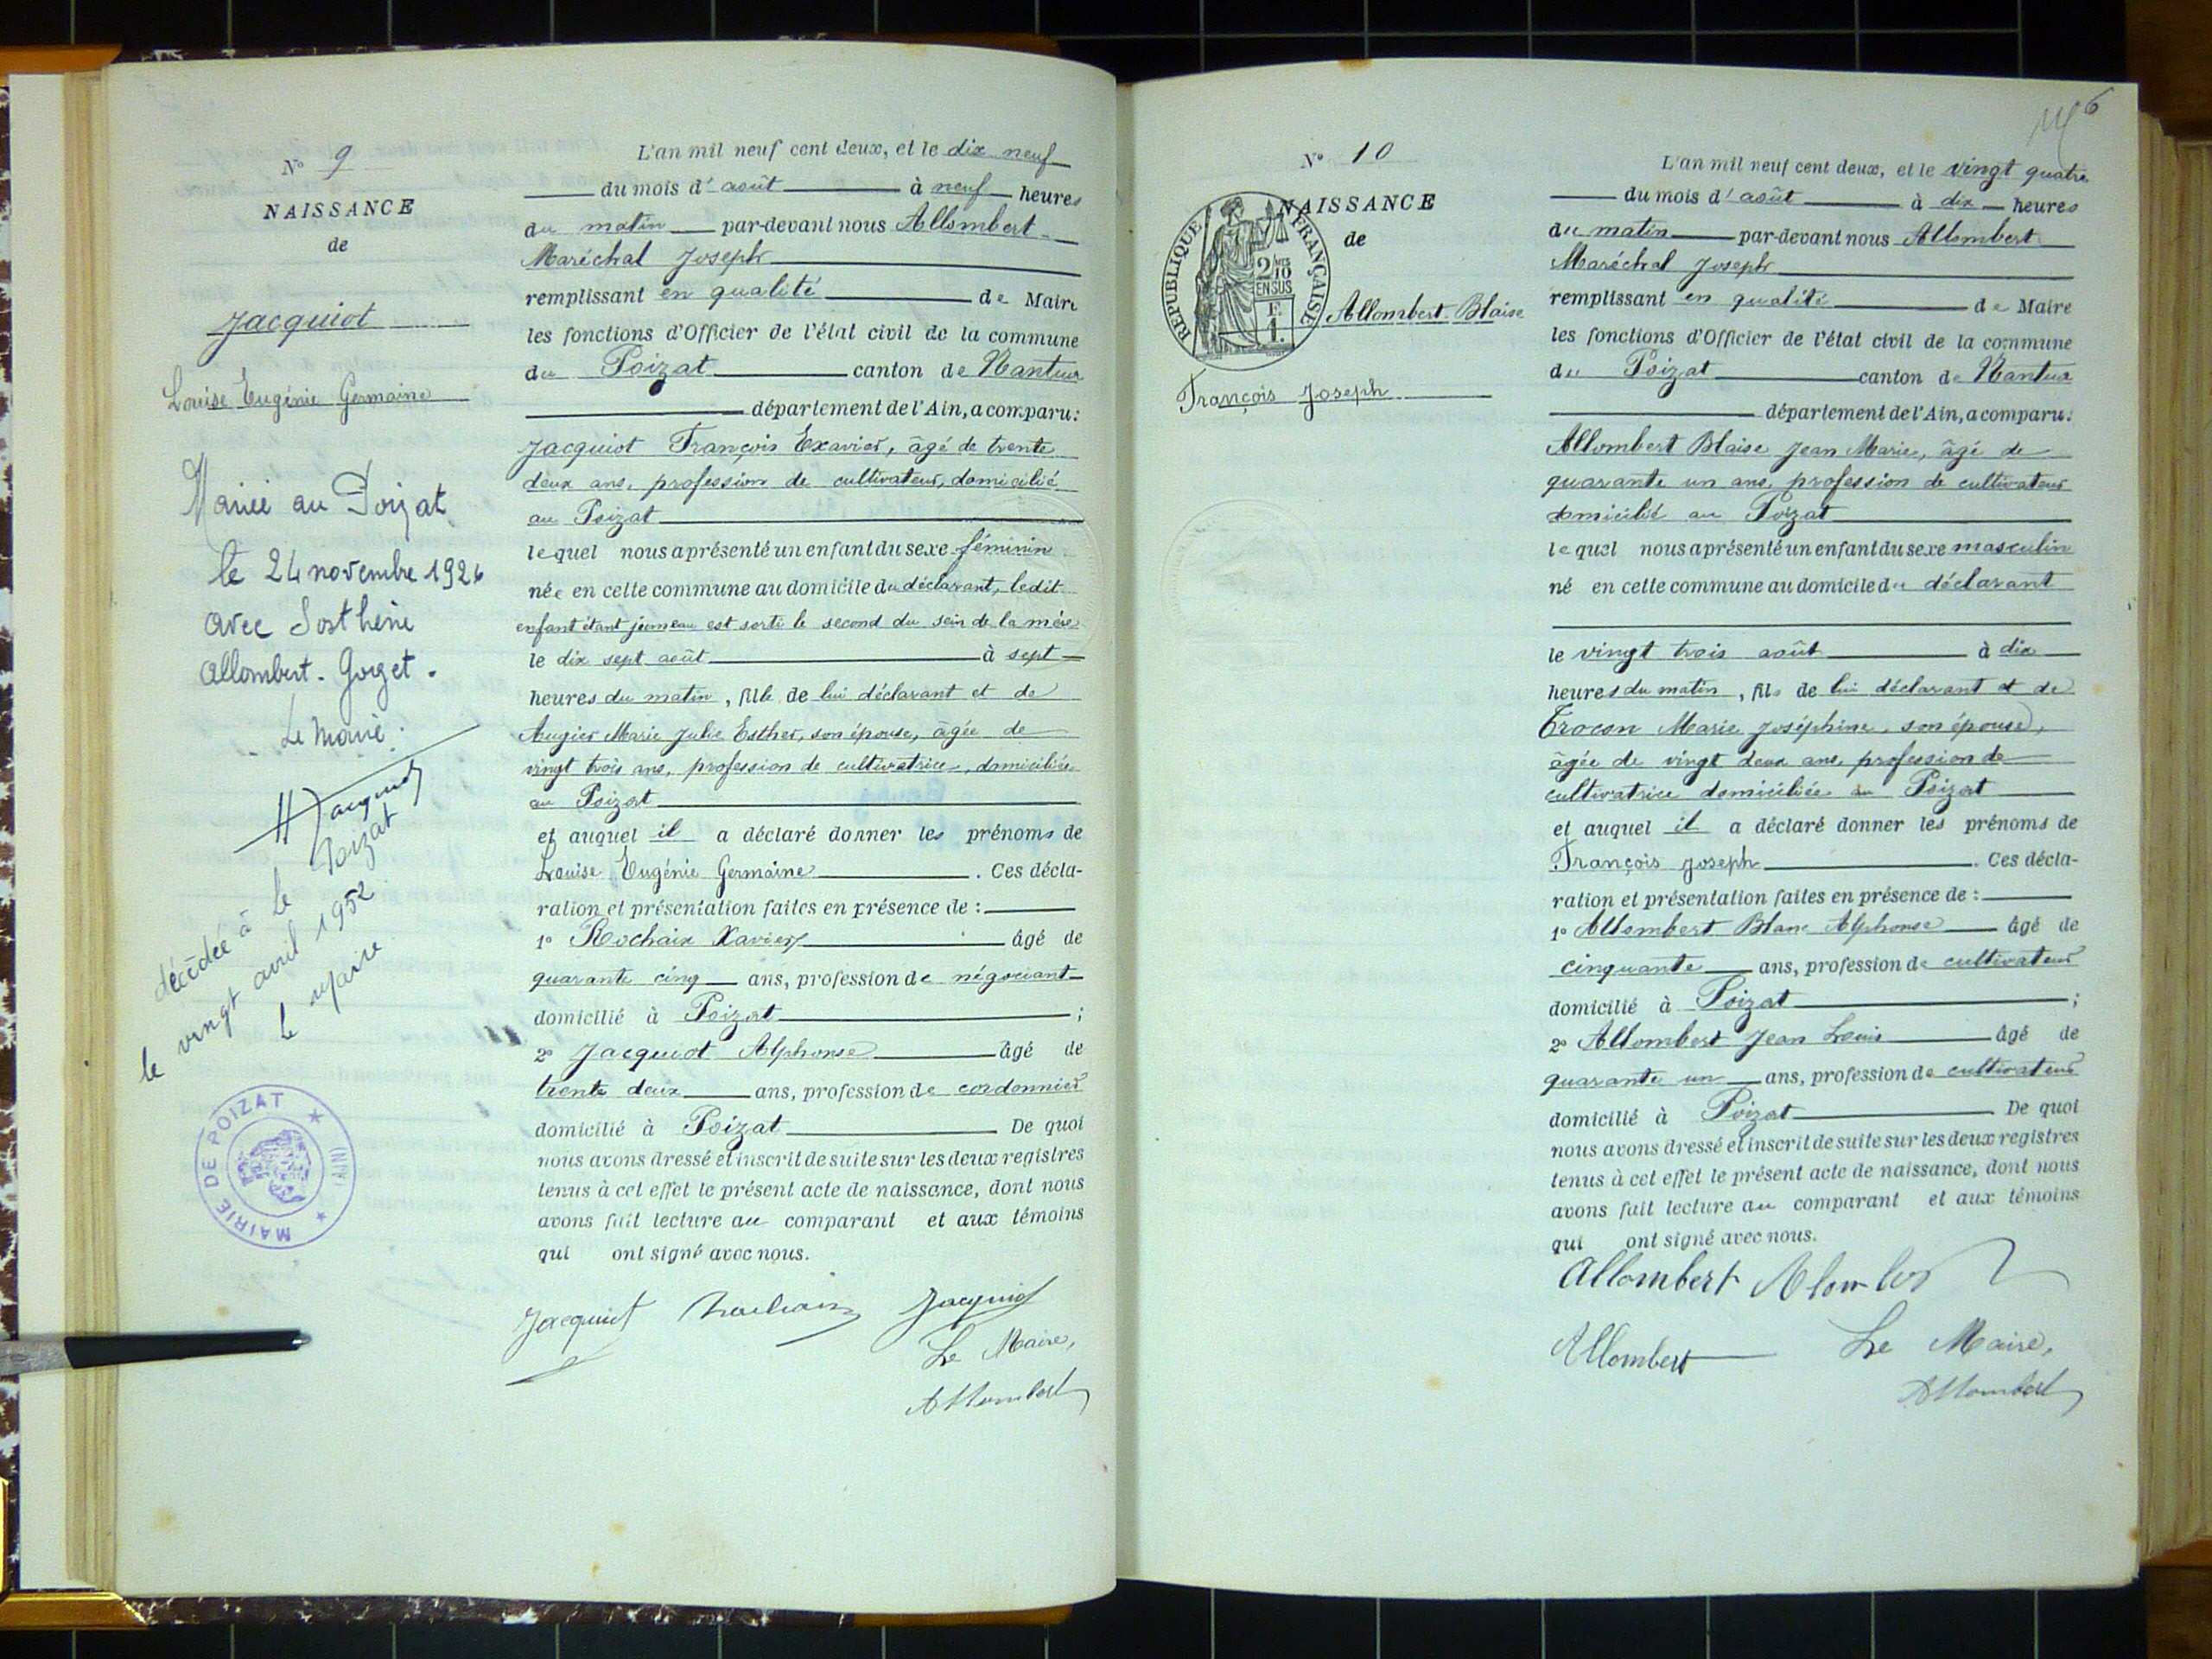 N° 9
NAISSANCE
de
Jacquiot
Louise Eugénie Germaine
Mariée au Poizat
le 24 novembre 1926
avec Sosthène
Allombert-Goget.
Le Maire
H Jacquiot
décédée à le Poizat
le vingt avril 1952
le Maire
MAIRIE DE POIZAT ★ (AIN) ★
L'an mil neuf cent deux, et le dix neuf
du mois d'août à neuf heures
du matin par-devant nous Allombert-
Maréchal Joseph
remplissant en qualité de Maire
les fonctions d'Officier de l'état civil de la commune
du Poizat canton de Nantua
département de l'Ain, a comparu:
Jacquiot François Exavier, âgé de trente
deux ans, profession de cultivateur, domicilié
au Poizat
lequel nous a présenté un enfant du sexe féminin
née en cette commune au domicile du déclarant, ledit
enfant étant jumeau est sorti le second du sein de la mère
le dix sept août à sept
heures du matin, fille de lui déclarant et de
Augier Marie Julie Esther, son épouse, âgée de
vingt trois ans, profession de cultivatrice, domiciliée
au Poizat
et auquel il a déclaré donner les prénoms de
Louise Eugénie Germaine. Ces décla-
ration et présentation faites en présence de :
1° Rochaix Xavier âgé de
quarante cinq ans, profession de négociant
domicilié à Poizat ;
2° Jacquiot Alphonse âgé de
trente deux ans, profession de cordonnier
domicilié à Poizat De quoi
nous avons dressé et inscrit de suite sur les deux registres
tenus à cet effet le présent acte de naissance, dont nous
avons fait lecture au comparant et aux témoins
qui ont signé avec nous.
Jacquiot Rochaix Jacquiot
Le Maire,
Allombert
6
N° 10
NAISSANCE
de
REPUBLIQUE FRANÇAISE
2/10
EN SUS
F.
1.
Allombert-Blaise
François Joseph
L'an mil neuf cent deux, et le vingt quatre
du mois d'août à dix heures
du matin par-devant nous Allombert
Maréchal Joseph
remplissant en qualité de Maire
les fonctions d'Officier de l'état civil de la commune
du Poizat canton de Nantua
département de l'Ain, a comparu:
Allombert Blaise Jean Marie, âgé de
quarante un ans, profession de cultivateur
domicilié au Poizat
lequel nous a présenté un enfant du sexe masculin
né en cette commune au domicile du déclarant
le vingt trois août à dix
heures du matin, fils de lui déclarant et de
Trocon Marie Joséphine, son épouse,
âgée de vingt deux ans, profession de
cultivatrice domiciliée au Poizat
et auquel il a déclaré donner les prénoms de
François Joseph. Ces décla-
ration et présentation faites en présence de :
1° Allombert Blanc Alphonse âgé de
cinquante ans, profession de cultivateur
domicilié à Poizat ;
2° Allombert Jean Louis âgé de
quarante un ans, profession de cultivateur
domicilié à Poizat De quoi
nous avons dressé et inscrit de suite sur les deux registres
tenus à cet effet le présent acte de naissance, dont nous
avons fait lecture au comparant et aux témoins
qui ont signé avec nous.
Allombert
Allombert Le Maire,
Allombert